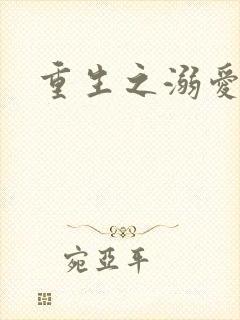 重生之溺愛
宛亞平